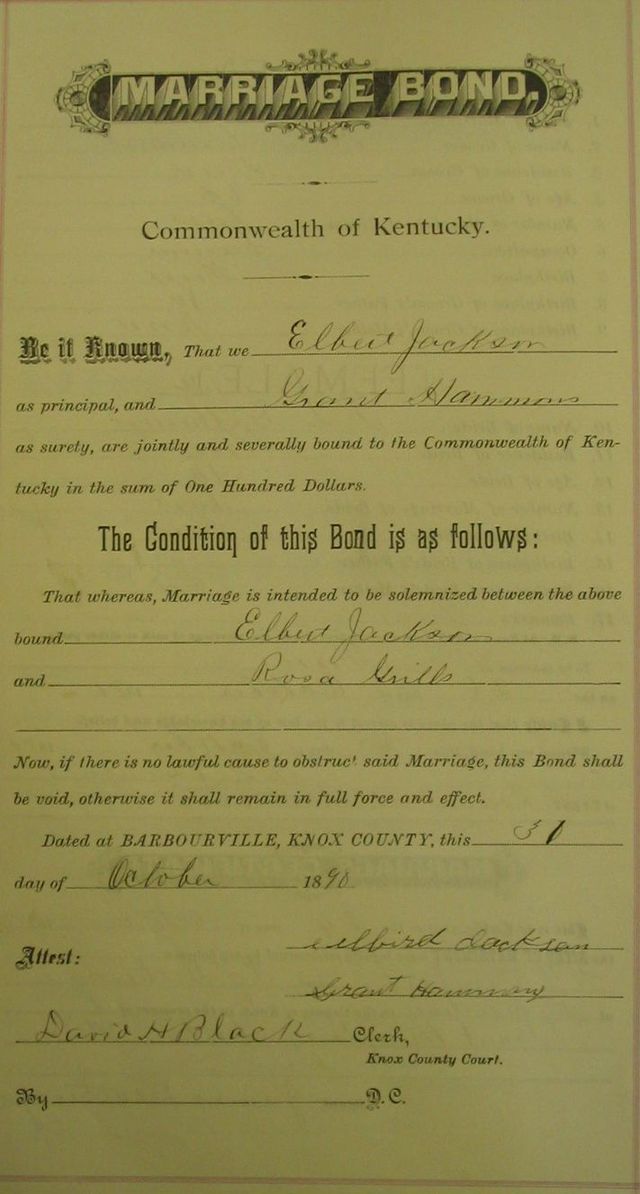 MARRIAGE BOND,
Commonwealth of Kentucky.
Be it Known, That we Elbert Jackson
as principal, and Grant Hammons
as surety, are jointly and severally bound to the Commonwealth of Ken-
tucky in the sum of One Hundred Dollars.
The Condition of this Bond is as follows:
That whereas, Marriage is intended to be solemnized between the above
bound Elbert Jackson
and Rosa Grills
Now, if there is no lawful cause to obstruct said Marriage, this Bond shall
be void, otherwise it shall remain in full force and effect.
Dated at BARBOURVILLE, KNOX COUNTY, this 31
day of October 1890
Elbird Jackson
Attest:
Grant Hammons
David H Black Clerk,
Knox County Court.
By D. C.